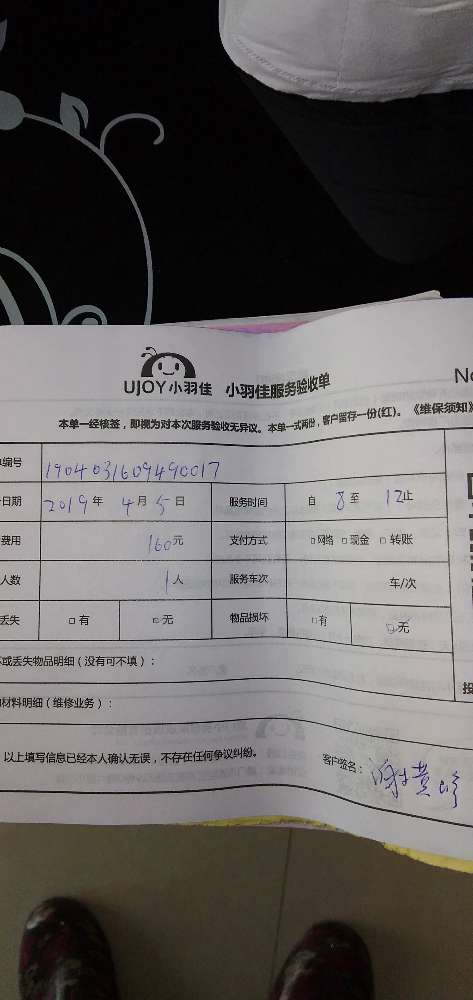 UJOY小羽佳 小羽佳服务验收单 No
本单一经核签，即视为对本次服务验收无异议。本单一式两份，客户留存一份(红)。《维保须知》
编号 1904031609490017
日期 2019年 4月5日 服务时间 自 8 至 12止
费用 160元 支付方式 □网络 □现金 □转账
人数 1人 服务车次 车/次
丢失 □有 □无 物品损坏 □有 □无
或丢失物品明细（没有可不填）：
材料明细（维修业务）：
以上填写信息已经本人确认无误，不存在任何争议纠纷。 客户签名：
投